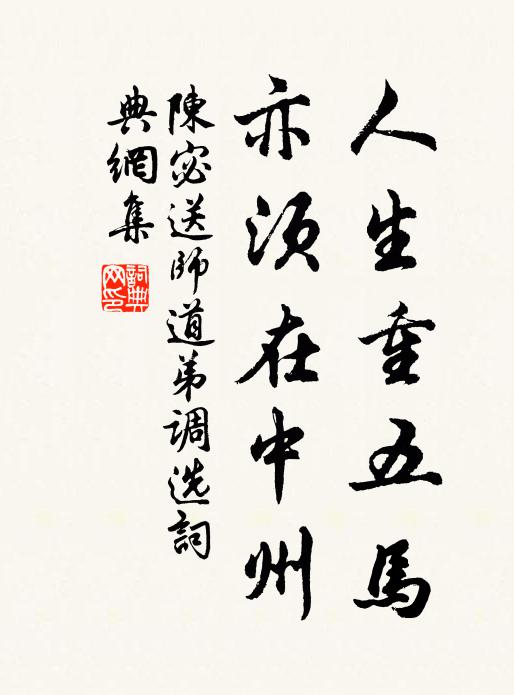 人生重五馬
亦須在中州
陳宓送師道弟調选詞
典網集
詞典
网印